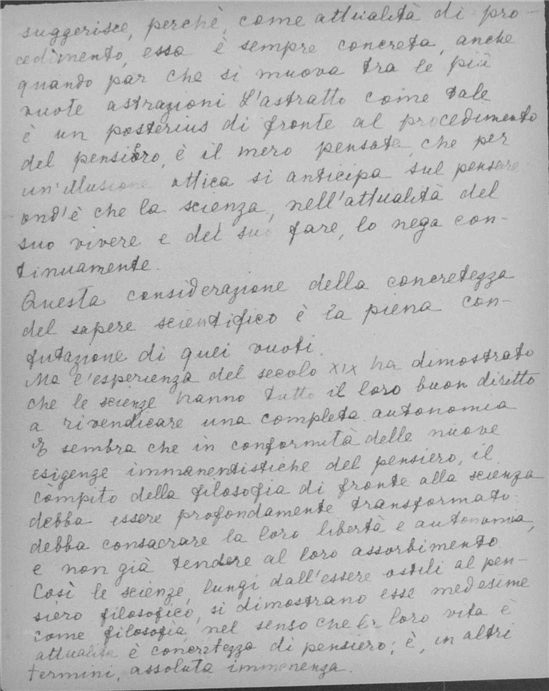 suggerisce, perchè, come attualità di pro-
cedimento, essa è sempre concreta, anche
quando par che si muova tra le più
vuote astrazioni L'astratto come tale
è un posterius di fronte al procedimento
del pensiero, è il mero pensato, che per
un'illusione ottica si anticipa sul pensare
ond'è che la scienza, nell'attualità del
suo vivere e del suo fare, lo nega con-
tinuamente.
Questa considerazione della concretezza
del sapere scientifico è la piena con-
futazione di quei vuoti.
Ma l'esperienza del secolo XIX ha dimostrato
che le scienze hanno tutto il loro buon diritto
a rivendicare una completa autonomia
E sembra che in conformità delle nuove
esigenze immanentistiche del pensiero, il
còmpito della filosofia di fronte alla scienza
debba essere profondamente transformato:
debba consacrare la loro libertà e autonomia,
e non già tendere al loro assorbimento
Così le scienze, lungi dall'essere ostili al pen-
siero filosofico, si dimostrano esse medesime
come filosofia, nel senso che la loro vita è
attualità è concretezza di pensiero; è, in altri
termini, assoluta immanenza.